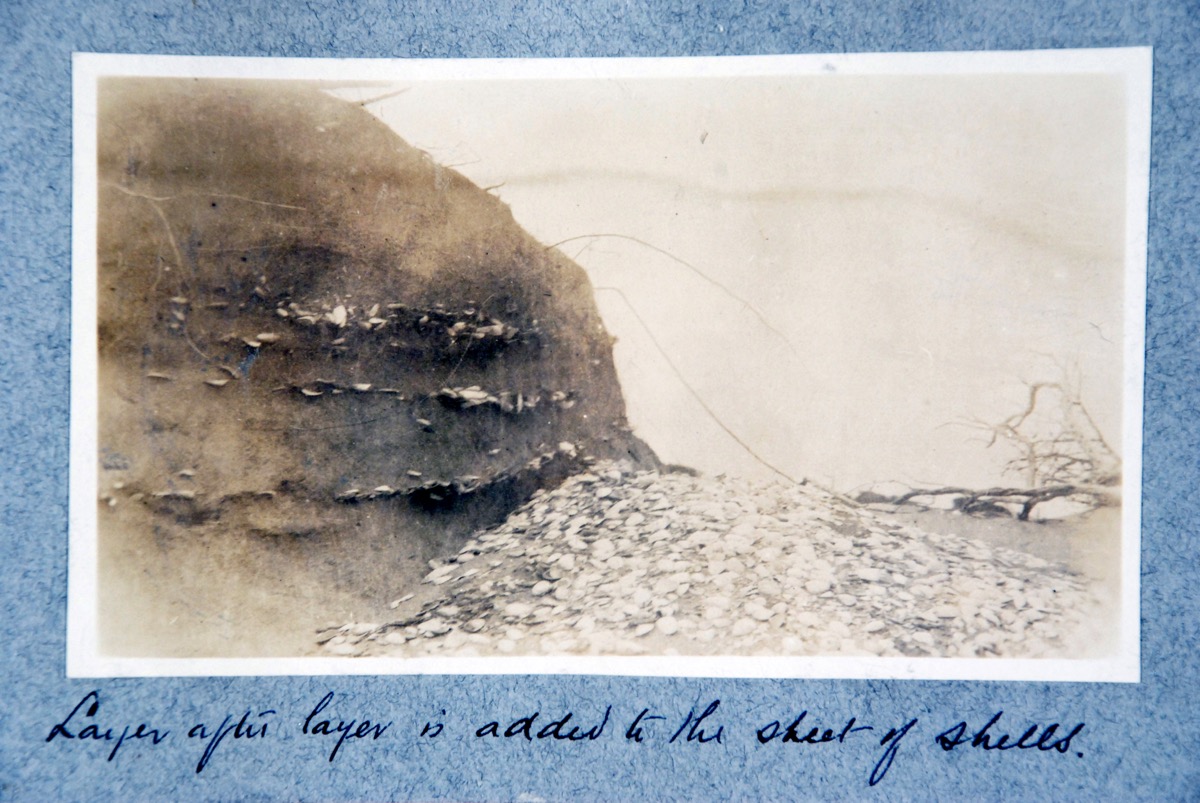 Layer after layer is added to the sheet of shells.